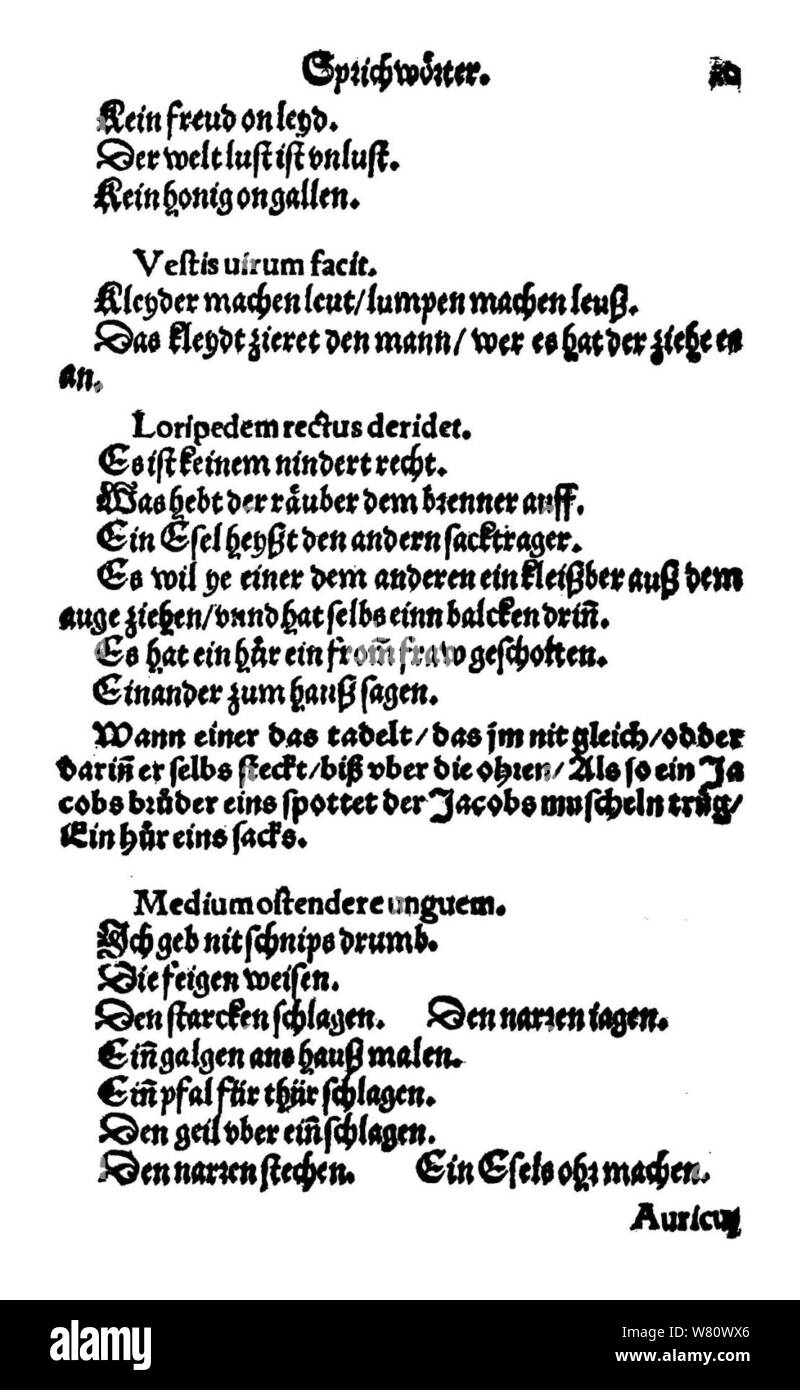 Sprichwörter.
Kein freud on leyd.
Der welt lust ist vnlust.
Kein honig on gallen.
Vestis uirum facit.
Kleyder machen leut/lumpen machen leuß.
Das kleydt zieret den mann/ wer es hat der ziehe es
an.
Loripedem rectus deridet.
Es ist keinem nindert recht.
Was hebt der räuber dem brenner auff.
Ein Esel heyßt den andern sacktrager.
Es wil ye einer dem anderen ein kleißber auß dem
auge ziehen/vnnd hat selbs einn balcken driñ.
Es hat ein hůr ein from̃ fraw gescholten.
Einander zum hauß sagen.
Wann einer das tadelt/das jm nit gleich/odder
dariñ er selbs steckt/biß vber die ohren/Als so ein Ja
cobs brůder eins spottet der Jacobs muscheln trůg/
Ein hůr eins sacks.
Medium ostendere unguem.
Ich geb nit schnips drumb.
Die feigen weisen.
Den starcken schlagen. Den narren iagen.
Eiñ galgen ans hauß malen.
Eiñ pfal für thür schlagen.
Den geil vber eiñ schlagen.
Den narren stechen. Ein Esels ohr machen.
Auricu
alamy
Image ID: W80WX6
www.alamy.com